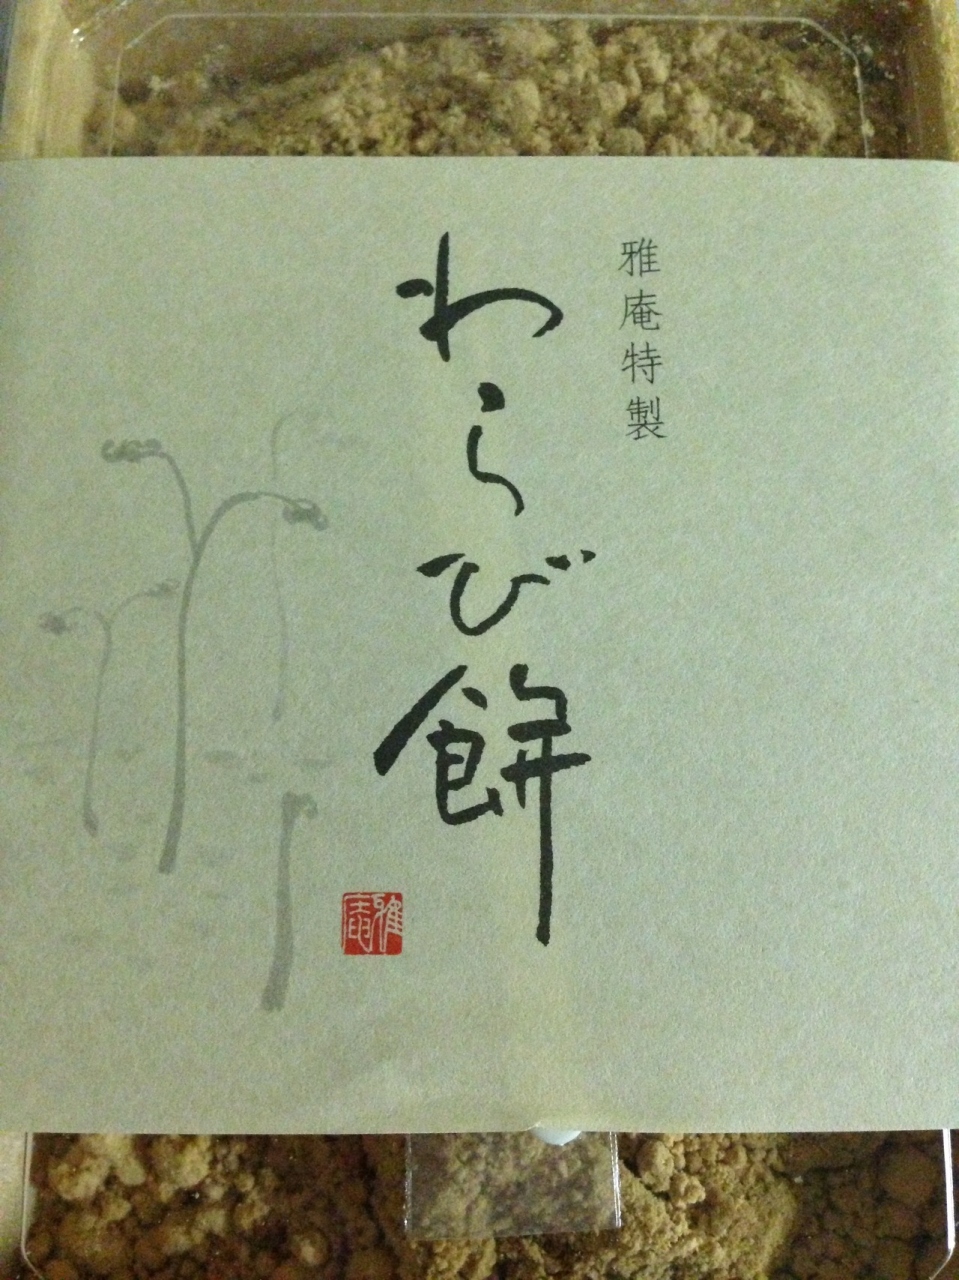 雅庵特製
わらび餅
雅庵